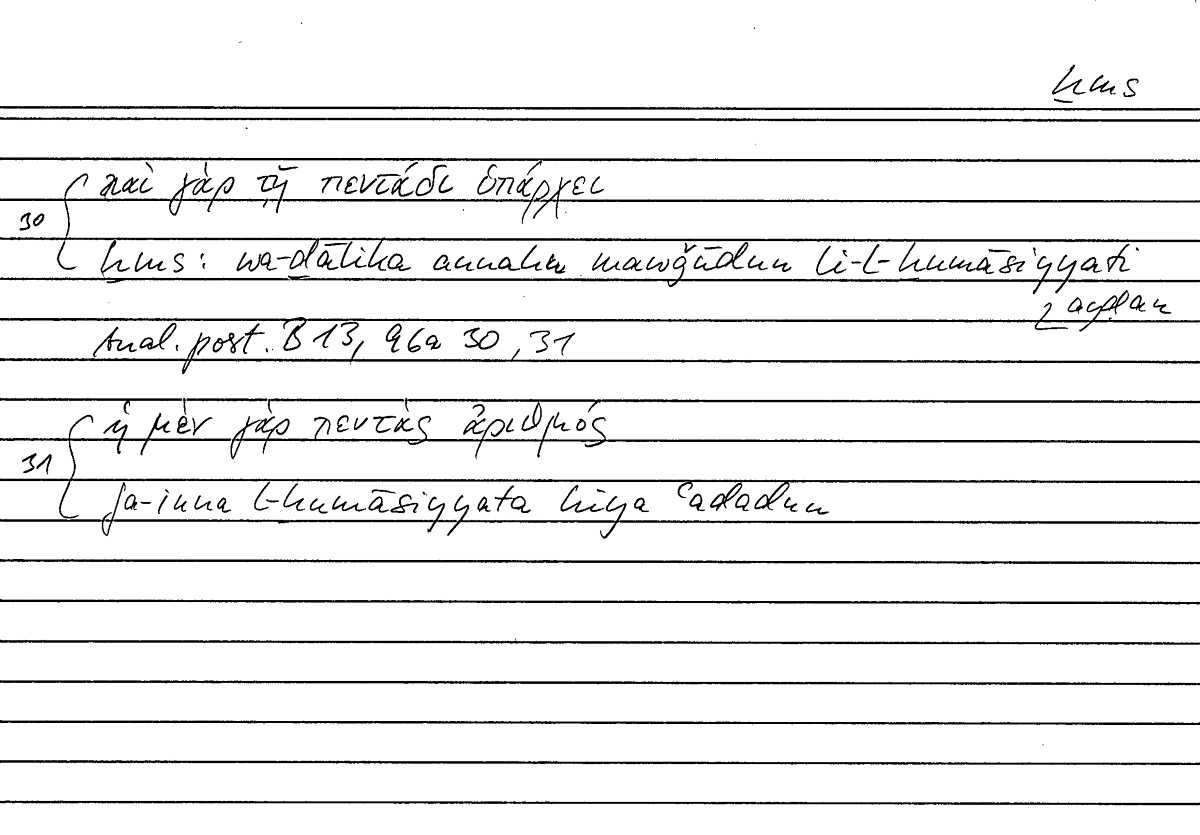 ḫms
καὶ γὰρ τῇ πεντάδι ὑπάρχει
30
ḫms: wa-ḏālika annahu mawǧūdun li-l-ḫumāsiyyati
ayḍan
Anal. post. B 13, 96a 30, 31
ἡ μὲν γὰρ πεντὰς ἀριθμός
31
fa-inna l-ḫumāsiyyata hiya ʿadadun